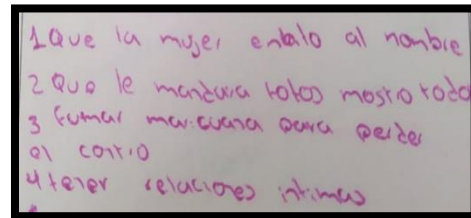 1 Que la mujer embalo al hombre
2 Que le mandara fotos mostro todo
3 fumar maricuana para perder
el contro
4 tener relaciones intimas